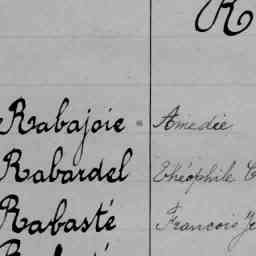 R
Rabajoie Amedée
Rabardel Théophile
Rabasté François